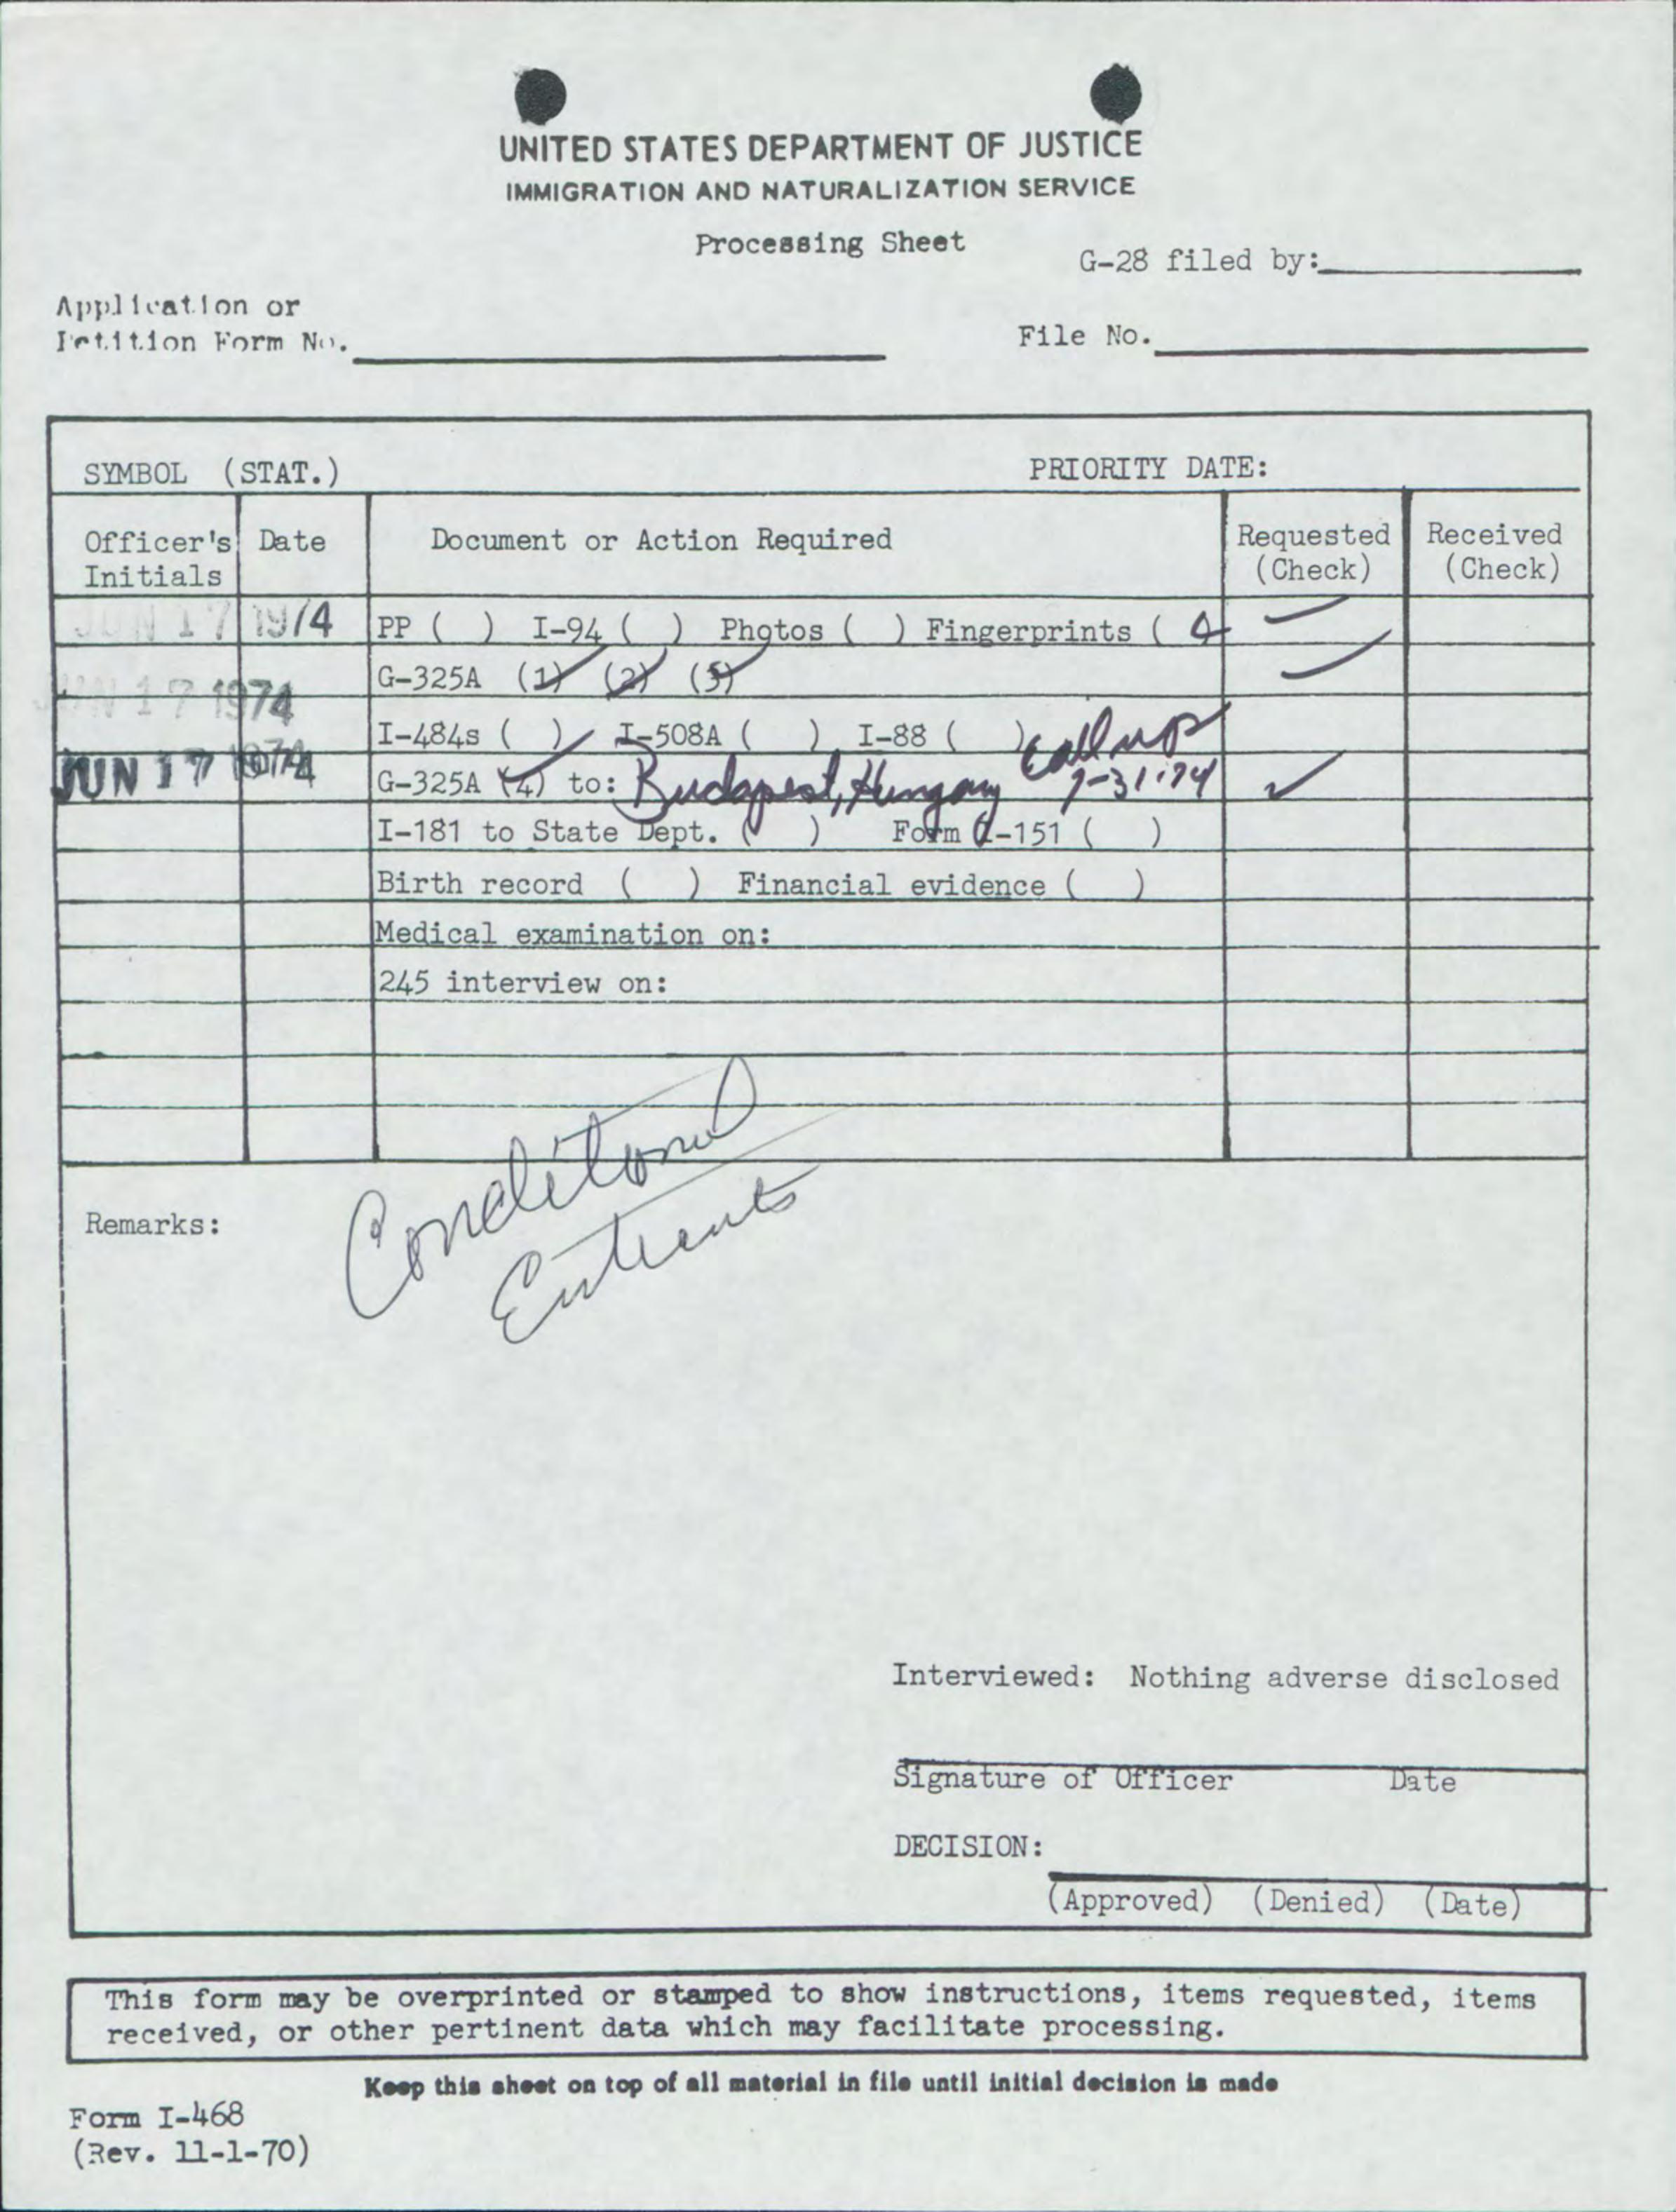 UNITED STATES DEPARTMENT OF JUSTICE
IMMIGRATION AND NATURALIZATION SERVICE
Processing Sheet
G-28 filed by:
Application or
Petition Form No.
File No.
SYMBOL (STAT.) PRIORITY DATE:
Officer's Initials Date Document or Action Required Requested (Check) Received (Check)
JUN 17 1974 PP ( ) I-94 ( ) Photos ( ) Fingerprints (
JUN 17 1974 G-325A (1) (2) (3)
I-484s ( ) I-508A ( ) I-88 ( ) Call up
JUN 17 1974 G-325A (4) to: Budapest, Hungary 7-31-74 ✓
I-181 to State Dept. ( ) Form I-151 ( )
Birth record ( ) Financial evidence ( )
Medical examination on:
245 interview on:
Conditional
Entrants
Remarks:
Interviewed: Nothing adverse disclosed
Signature of Officer Date
DECISION:
(Approved) (Denied) (Date)
This form may be overprinted or stamped to show instructions, items requested, items
received, or other pertinent data which may facilitate processing.
Keep this sheet on top of all material in file until initial decision is made
Form I-468
(Rev. 11-1-70)